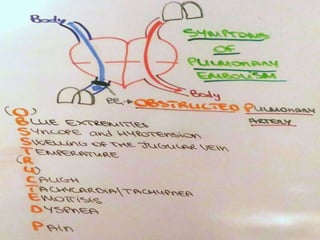 Body
SYMPTOMS
OF
PULMONARY
EMBOLISM
Body
PE → OBSTRUCTED PULMONARY
ARTERY
(O)
BLUE EXTREMITIES
SYNCOPE AND HYPOTENSION
SWELLING OF THE JUGULAR VEIN
TEMPERATURE
(R)
(U)
CAUGH
TACHYCARDIA/TACHYPNEA
EMOTTISIS
DYSPNEA
PAIN